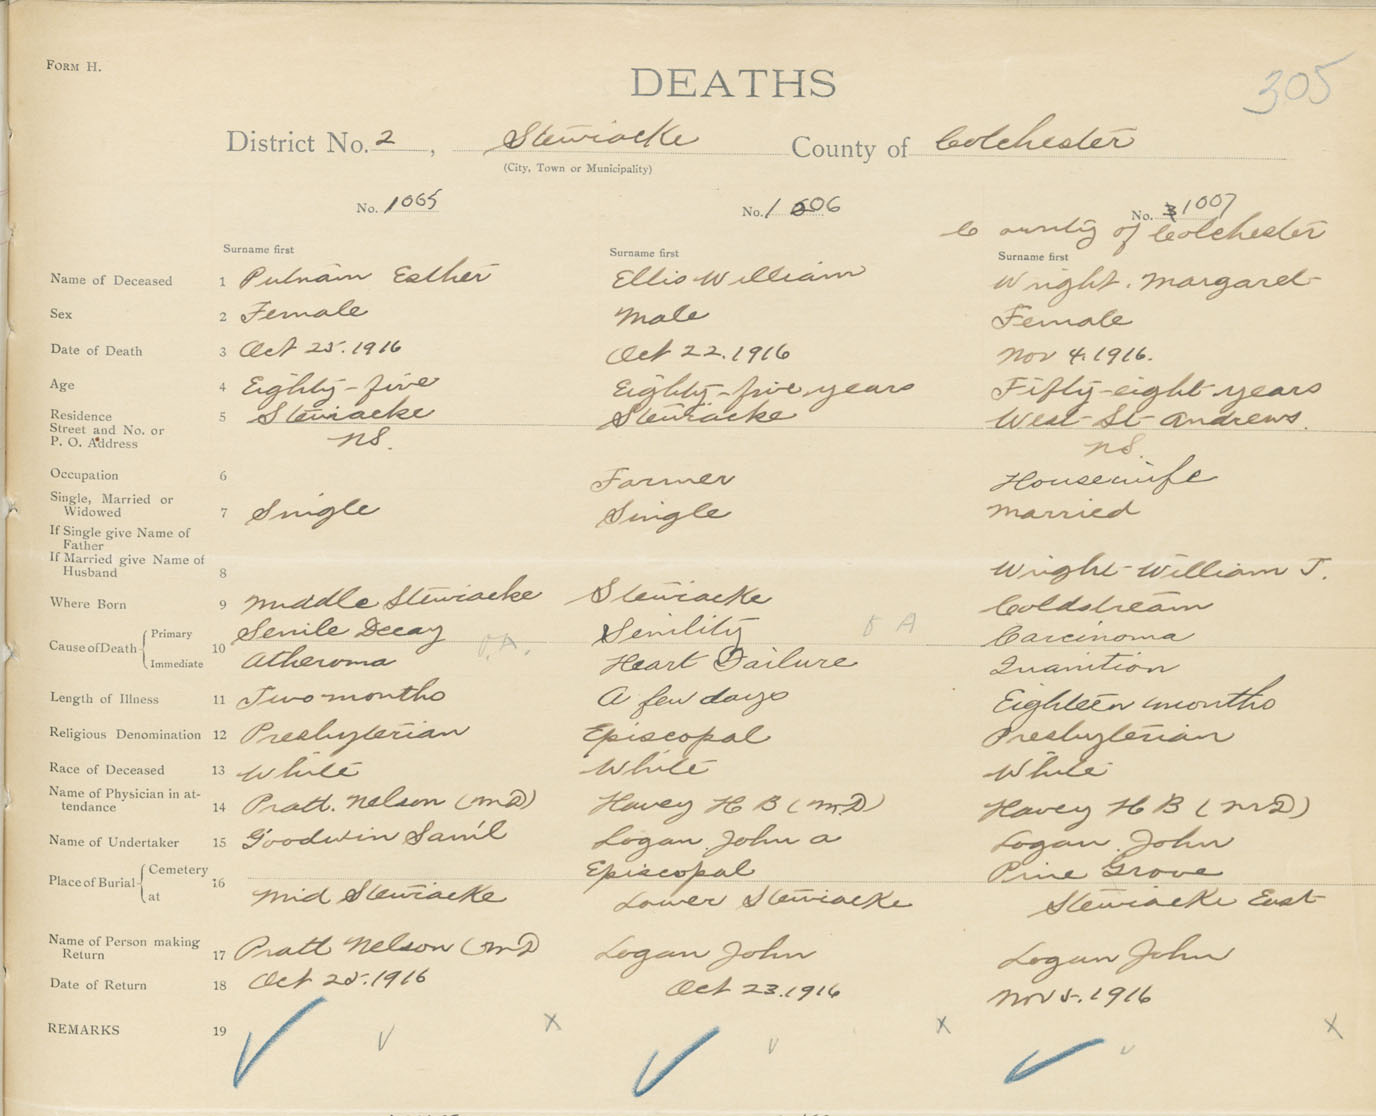 FORM H.
DEATHS
305
District No. 2, Stewiacke County of Colchester
(City, Town or Municipality)
No. 1065 No. 1006 No. 1007
County of Colchester
Surname first Surname first Surname first
Name of Deceased 1 Putnam Esther Ellis William Wright. Margaret
Sex 2 Female Male Female
Date of Death 3 Oct 25. 1916 Oct 22. 1916 Nov 4. 1916.
Age 4 Eighty-five Eighty-five years Fifty-eight years
Residence 5 Stewiacke Stewiacke West St Andrews.
Street and No. or
P. O. Address NS. NS.
Occupation 6 Farmer Housewife
Single, Married or
Widowed 7 Single Single Married
If Single give Name of
Father
If Married give Name of
Husband 8 Wright William J.
Where Born 9 Middle Stewiacke Stewiacke Coldstream
Cause of Death 10 Primary Senile Decay O.A. Senility O A Carcinoma
Immediate Atheroma Heart Failure Inanition
Length of Illness 11 Two months A few days Eighteen months
Religious Denomination 12 Presbyterian Episcopal Presbyterian
Race of Deceased 13 White White White
Name of Physician in at-
tendance 14 Pratt. Nelson (MD) Havey H B (MD) Havey H B (MD)
Name of Undertaker 15 Goodwin Sam'l Logan. John A Logan. John
Place of Burial 16 Cemetery Episcopal Pine Grove
at Mid Stewiacke Lower Stewiacke Stewiacke East
Name of Person making
Return 17 Pratt Nelson (MD Logan John Logan John
Date of Return 18 Oct 25. 1916 Oct 23. 1916 Nov 5. 1916
REMARKS 19 x x x